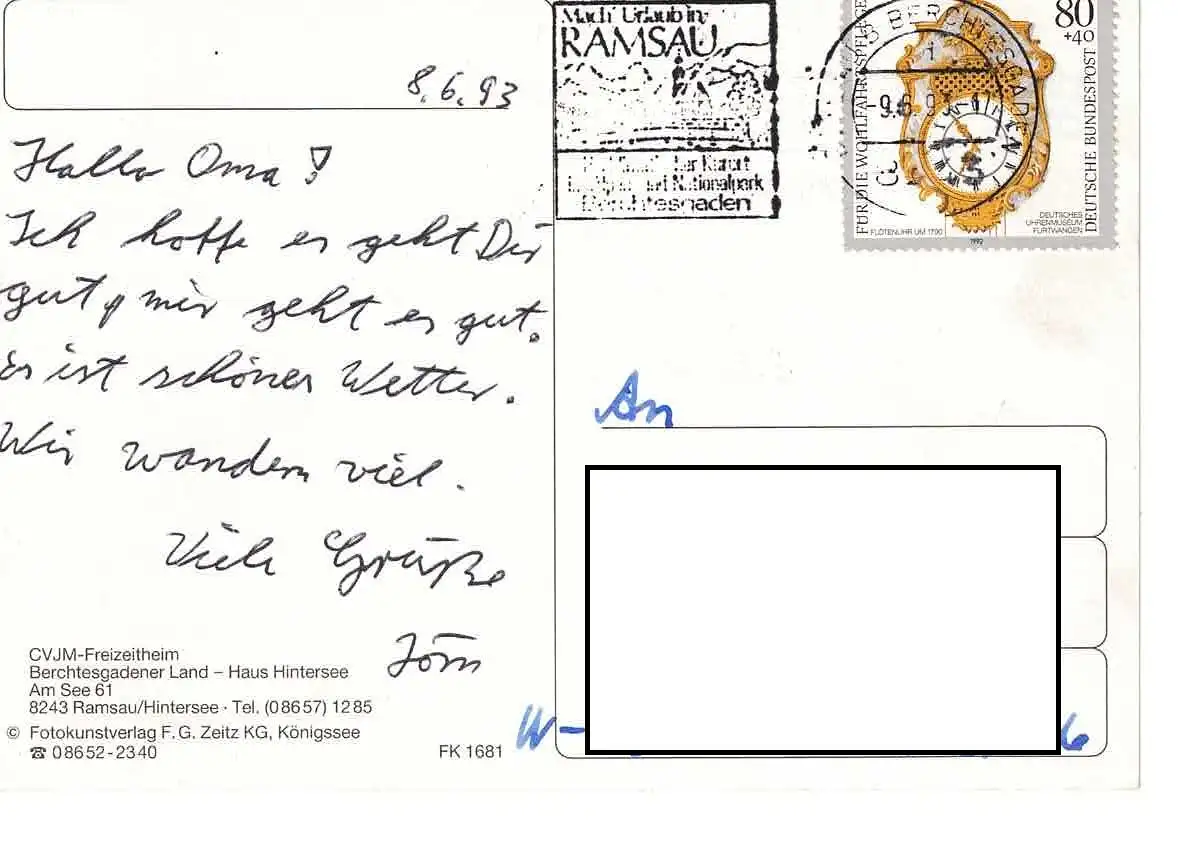 8.6.93
Hallo Oma!
Ich hoffe es geht Dir
gut, mir geht es gut.
Es ist schönes Wetter.
Wir wandern viel.
Viele Grüße
Jörn
CVJM-Freizeitheim
Berchtesgadener Land – Haus Hintersee
Am See 61
8243 Ramsau/Hintersee · Tel. (08657) 1285
© Fotokunstverlag F. G. Zeitz KG, Königssee
☎ 08652-2340
FK 1681
Mach' Urlaub in
RAMSAU
der Kurort
Nationalpark
Berchtesgaden
BERCHTESGADEN
-9.6.93-17
80
+40
FÜR DIE WOHLFAHRTSPFLEGE
DEUTSCHE BUNDESPOST
FLÖTENUHR UM 1790
1992
DEUTSCHES
UHRENMUSEUM
FURTWANGEN
An
W-
6